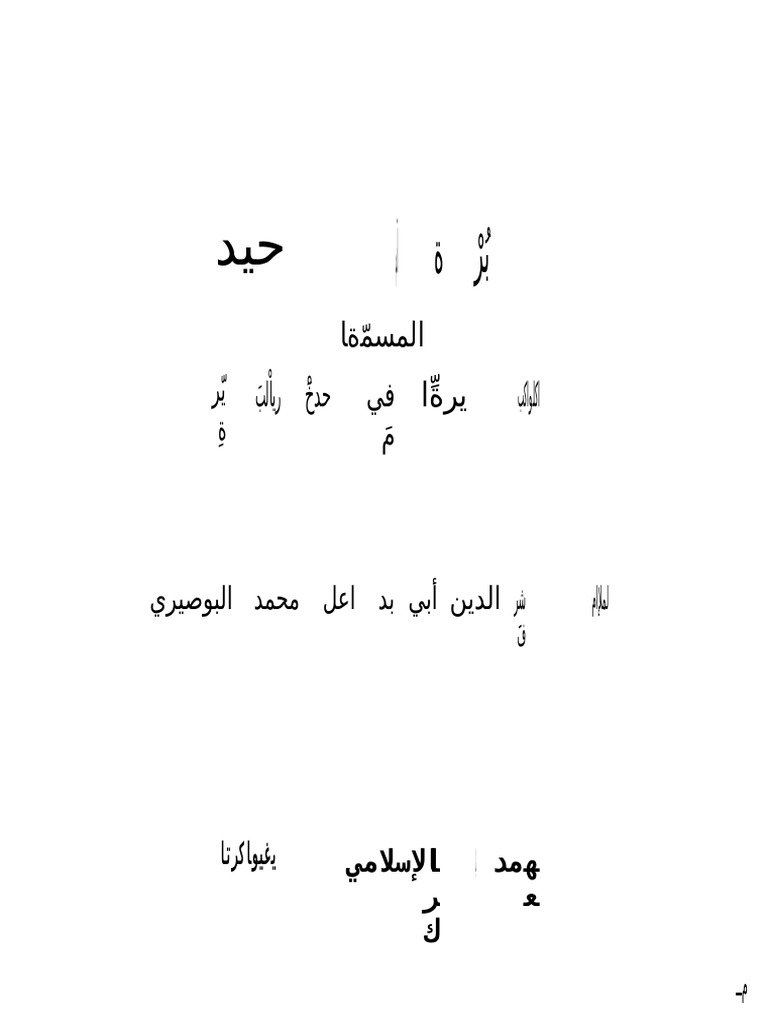 بُرْ ة حيد
المسمّةا
اكلواكب يرةِّا في حدخْ رياْلبَ يّر
مَ ةِ
لملإام شر الدين أبي بد اعل محمد البوصيري
فَ
همد االإسلامي يغيواكرتا
ع ر
ك
مـ